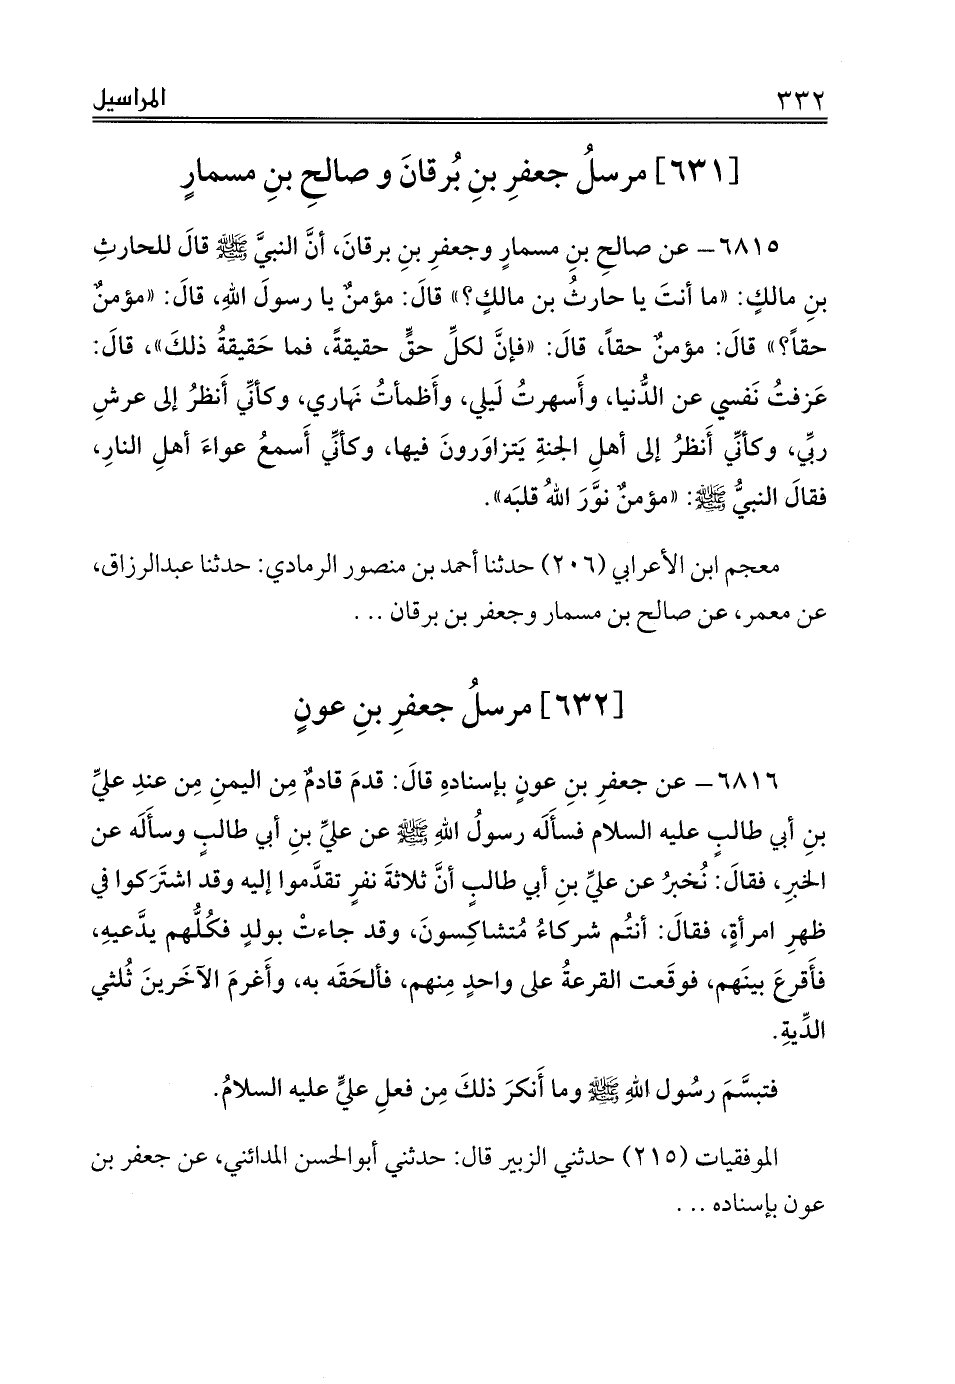 ٣٣٢ المراسيل
[٦٣١] مرسلُ جعفرِ بنِ بُرقانَ و صالحِ بنِ مسمارٍ
٦٨١٥ – عن صالحِ بنِ مسمارٍ وجعفرِ بنِ برقانَ، أنَّ النبيَّ ﷺ قالَ للحارثِ
بنِ مالكٍ: «ما أنتَ يا حارثُ بن مالكٍ؟» قالَ: مؤمنٌ يا رسولَ اللهِ، قالَ: «مؤمنٌ
حقاً؟» قالَ: مؤمنٌ حقاً، قالَ: «فإنَّ لكلِّ حقٍّ حقيقةً، فما حَقيقةُ ذلكَ»، قالَ:
عَزفتُ نَفسي عن الدُّنيا، وأَسهرتُ لَيلي، وأَظمأتُ نهاري، وكأنِّي أَنظرُ إلى عرشِ
ربِّي، وكأنِّي أَنظرُ إلى أهلِ الجنةِ يَتزاوَرونَ فيها، وكأنِّي أَسمعُ عواءَ أهلِ النارِ،
فقالَ النبيُّ ﷺ: «مؤمنٌ نوَّرَ اللهُ قلبَه».
معجم ابن الأعرابي (٢٠٦) حدثنا أحمد بن منصور الرمادي: حدثنا عبدالرزاق،
عن معمر، عن صالح بن مسمار وجعفر بن برقان ...
[٦٣٢] مرسلُ جعفرِ بنِ عونٍ
٦٨١٦ – عن جعفرِ بنِ عونٍ بإسنادهِ قالَ: قدمَ قادمٌ مِن اليمنِ مِن عندِ عليِّ
بنِ أبي طالبٍ عليه السلام فسأَلَه رسولُ اللهِ ﷺ عن عليِّ بنِ أبي طالبٍ وسأَلَه عن
الخبرِ، فقالَ: نُخبرُ عن عليِّ بنِ أبي طالبٍ أنَّ ثلاثةَ نفرٍ تقدَّموا إليه وقد اشترَكوا في
ظهرِ امرأةٍ، فقالَ: أنتُم شركاءُ مُتشاكِسونَ، وقد جاءتْ بولدٍ فكُلُّهم يدَّعيهِ،
فأَقرعَ بينَهم، فوقَعت القرعةُ على واحدٍ مِنهم، فألحقَه به، وأَغرمَ الآخَرينَ ثُلثي
الدِّيةِ.
فتبسَّمَ رسُول اللهِ ﷺ وما أَنكرَ ذلكَ مِن فعلِ عليٍّ عليه السلامُ.
الموفقيات (٢١٥) حدثني الزبير قال: حدثني أبوالحسن المدائني، عن جعفر بن
عون بإسناده ...